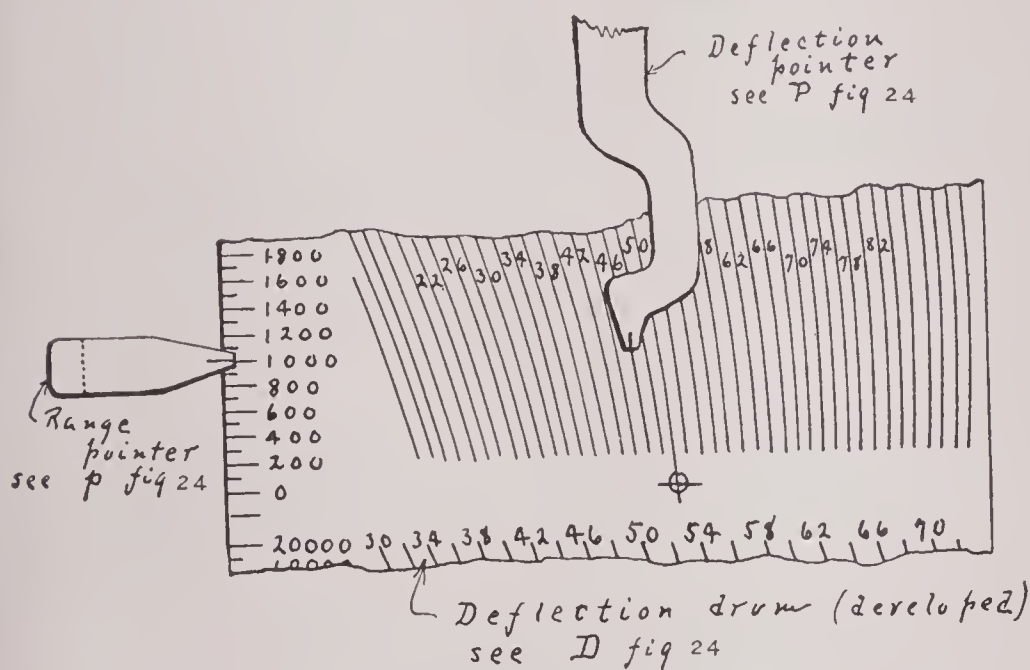 Deflection
pointer
see P fig 24
1800
1600
1400
1200
1000
800
600
400
200
0
20000
22 26 30 34 38 42 46 50 8 62 66 70 74 78 82
Range
pointer
see p fig 24
30 34 38 42 46 50 54 58 62 66 70
Deflection drum (developed)
see D fig 24